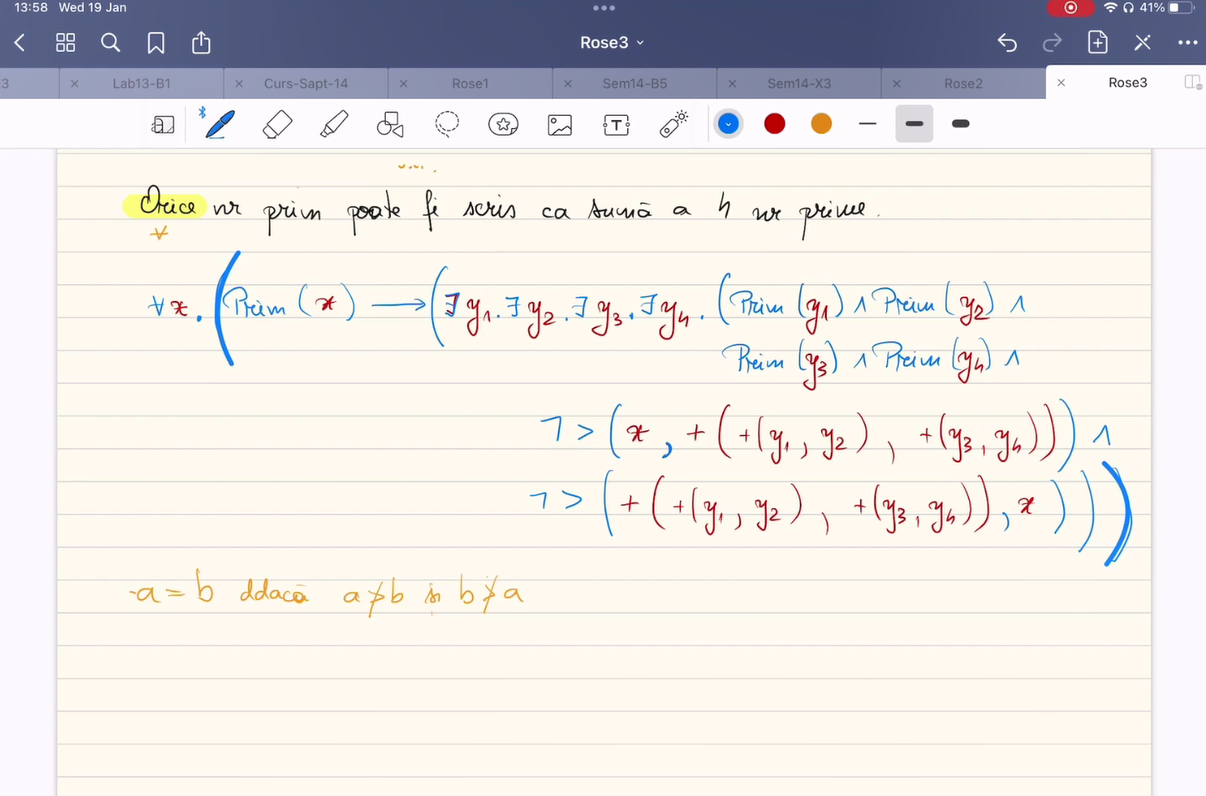 13:58 Wed 19 Jan
41%
Rose3
3 Lab13-B1 Curs-Sapt-14 Rose1 Sem14-B5 Sem14-X3 Rose2 Rose3
Orice nr prim poate fi scris ca sumă a 4 nr prime.
∀
∀x.(Prim(x) → (∃y₁.∃y₂.∃y₃.∃y₄.(Prim(y₁) ∧ Prim(y₂) ∧
Prim(y₃) ∧ Prim(y₄) ∧
¬>(x, +(+(y₁, y₂), +(y₃, y₄))) ∧
¬>(+(+(y₁, y₂), +(y₃, y₄)), x))))
a = b ddacă a ≯ b și b ≯ a